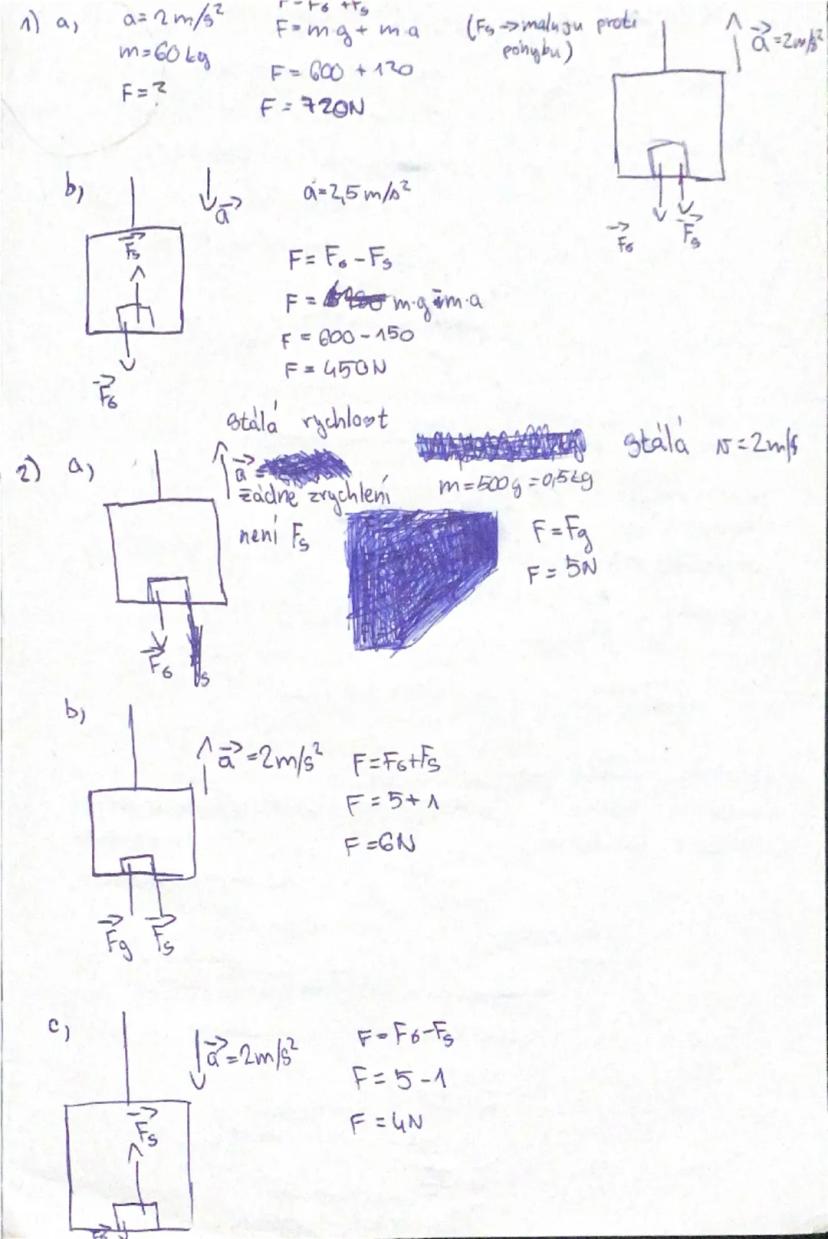 1) a, a=2m/s²
m=60kg
F=?
F=F₆+Fₛ
F=m·g+m·a
F=600+120
F=720N
(Fₛ→maluju proti
pohybu)
a⃗=2m/s²
F⃗₆ F⃗ₛ
b,
a⃗
a=2,5m/s²
F⃗ₛ
F⃗₆
F=F₆-Fₛ
F= m·g-m·a
F=600-150
F=450N
2) a,
stálá rychlost
a⃗=
žádné zrychlení
není Fₛ
stálá v=2m/s
m=500g=0,5kg
F=Fg
F=5N
F⃗₆
s
b,
a⃗=2m/s²
F=F₆+Fₛ
F=5+1
F=6N
F⃗g F⃗ₛ
c,
a⃗=2m/s²
F⃗ₛ
F=F₆-Fₛ
F=5-1
F=4N